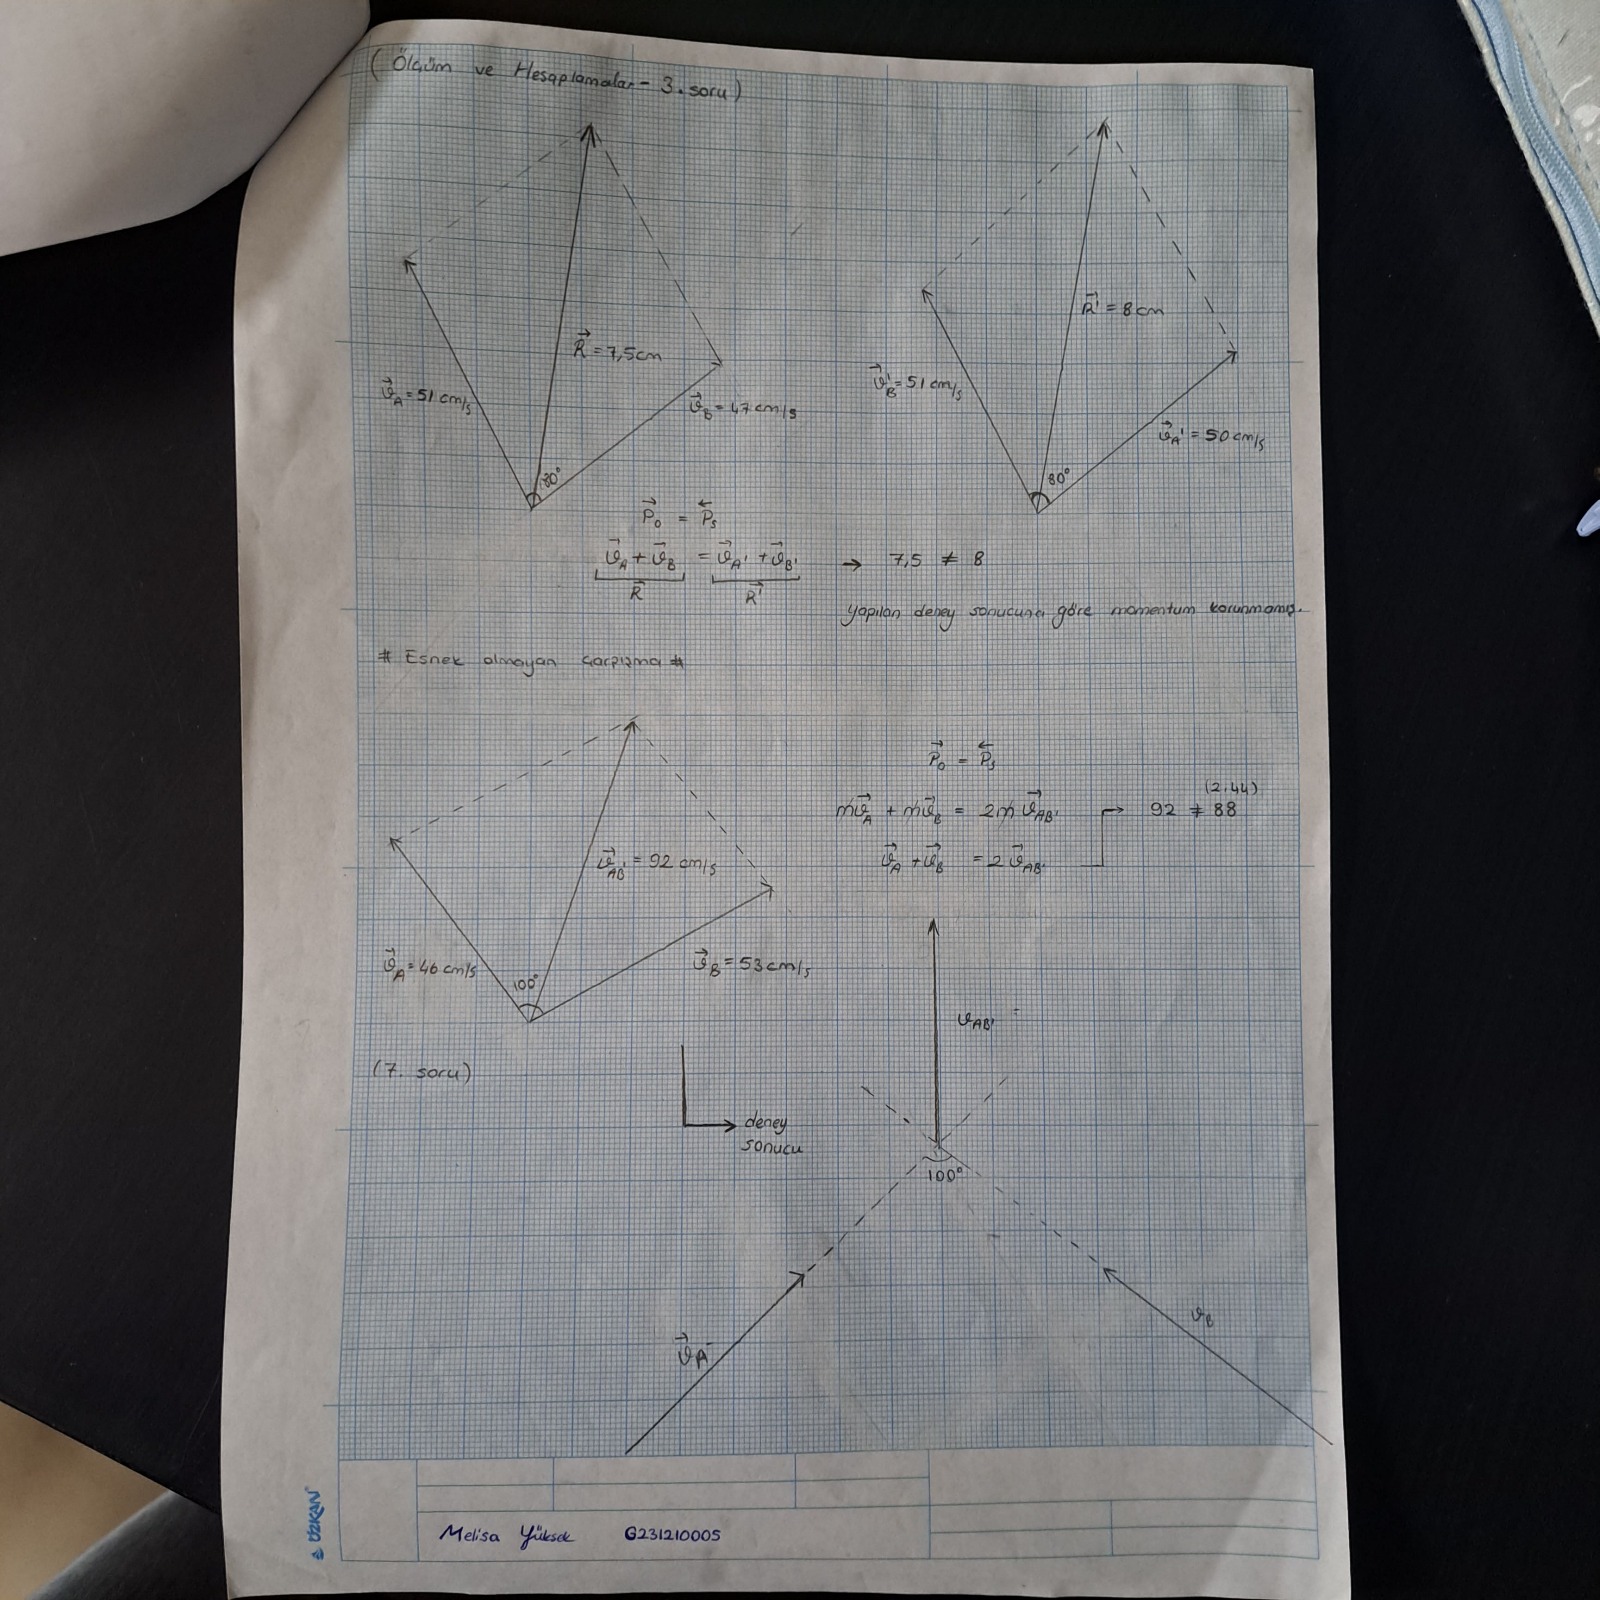 (Ölçüm ve Hesaplamalar - 3. soru)
R⃗ = 7,5cm
v⃗A = 51 cm/s
v⃗B = 47 cm/s
80°
R⃗' = 8 cm
v⃗B' = 51 cm/s
v⃗A' = 50 cm/s
80°
P⃗o = P⃖s
v⃗A + v⃗B = v⃗A' + v⃗B' → 7,5 ≠ 8
R⃗ R⃗'
Yapılan deney sonucuna göre momentum korunmamış.
# Esnek olmayan çarpışma #
v⃗AB' = 92 cm/s
v⃗A = 46 cm/s
100°
v⃗B = 53 cm/s
P⃗o = P⃖s
(2.44)
mv⃗A + mv⃗B = 2m v⃗AB' → 92 ≠ 88
v⃗A + v⃗B = 2 v⃗AB'
(7. soru)
deney
sonucu
vAB' =
100°
v⃗A
vB
Melisa Yüksek G231210005
ÜZKAN